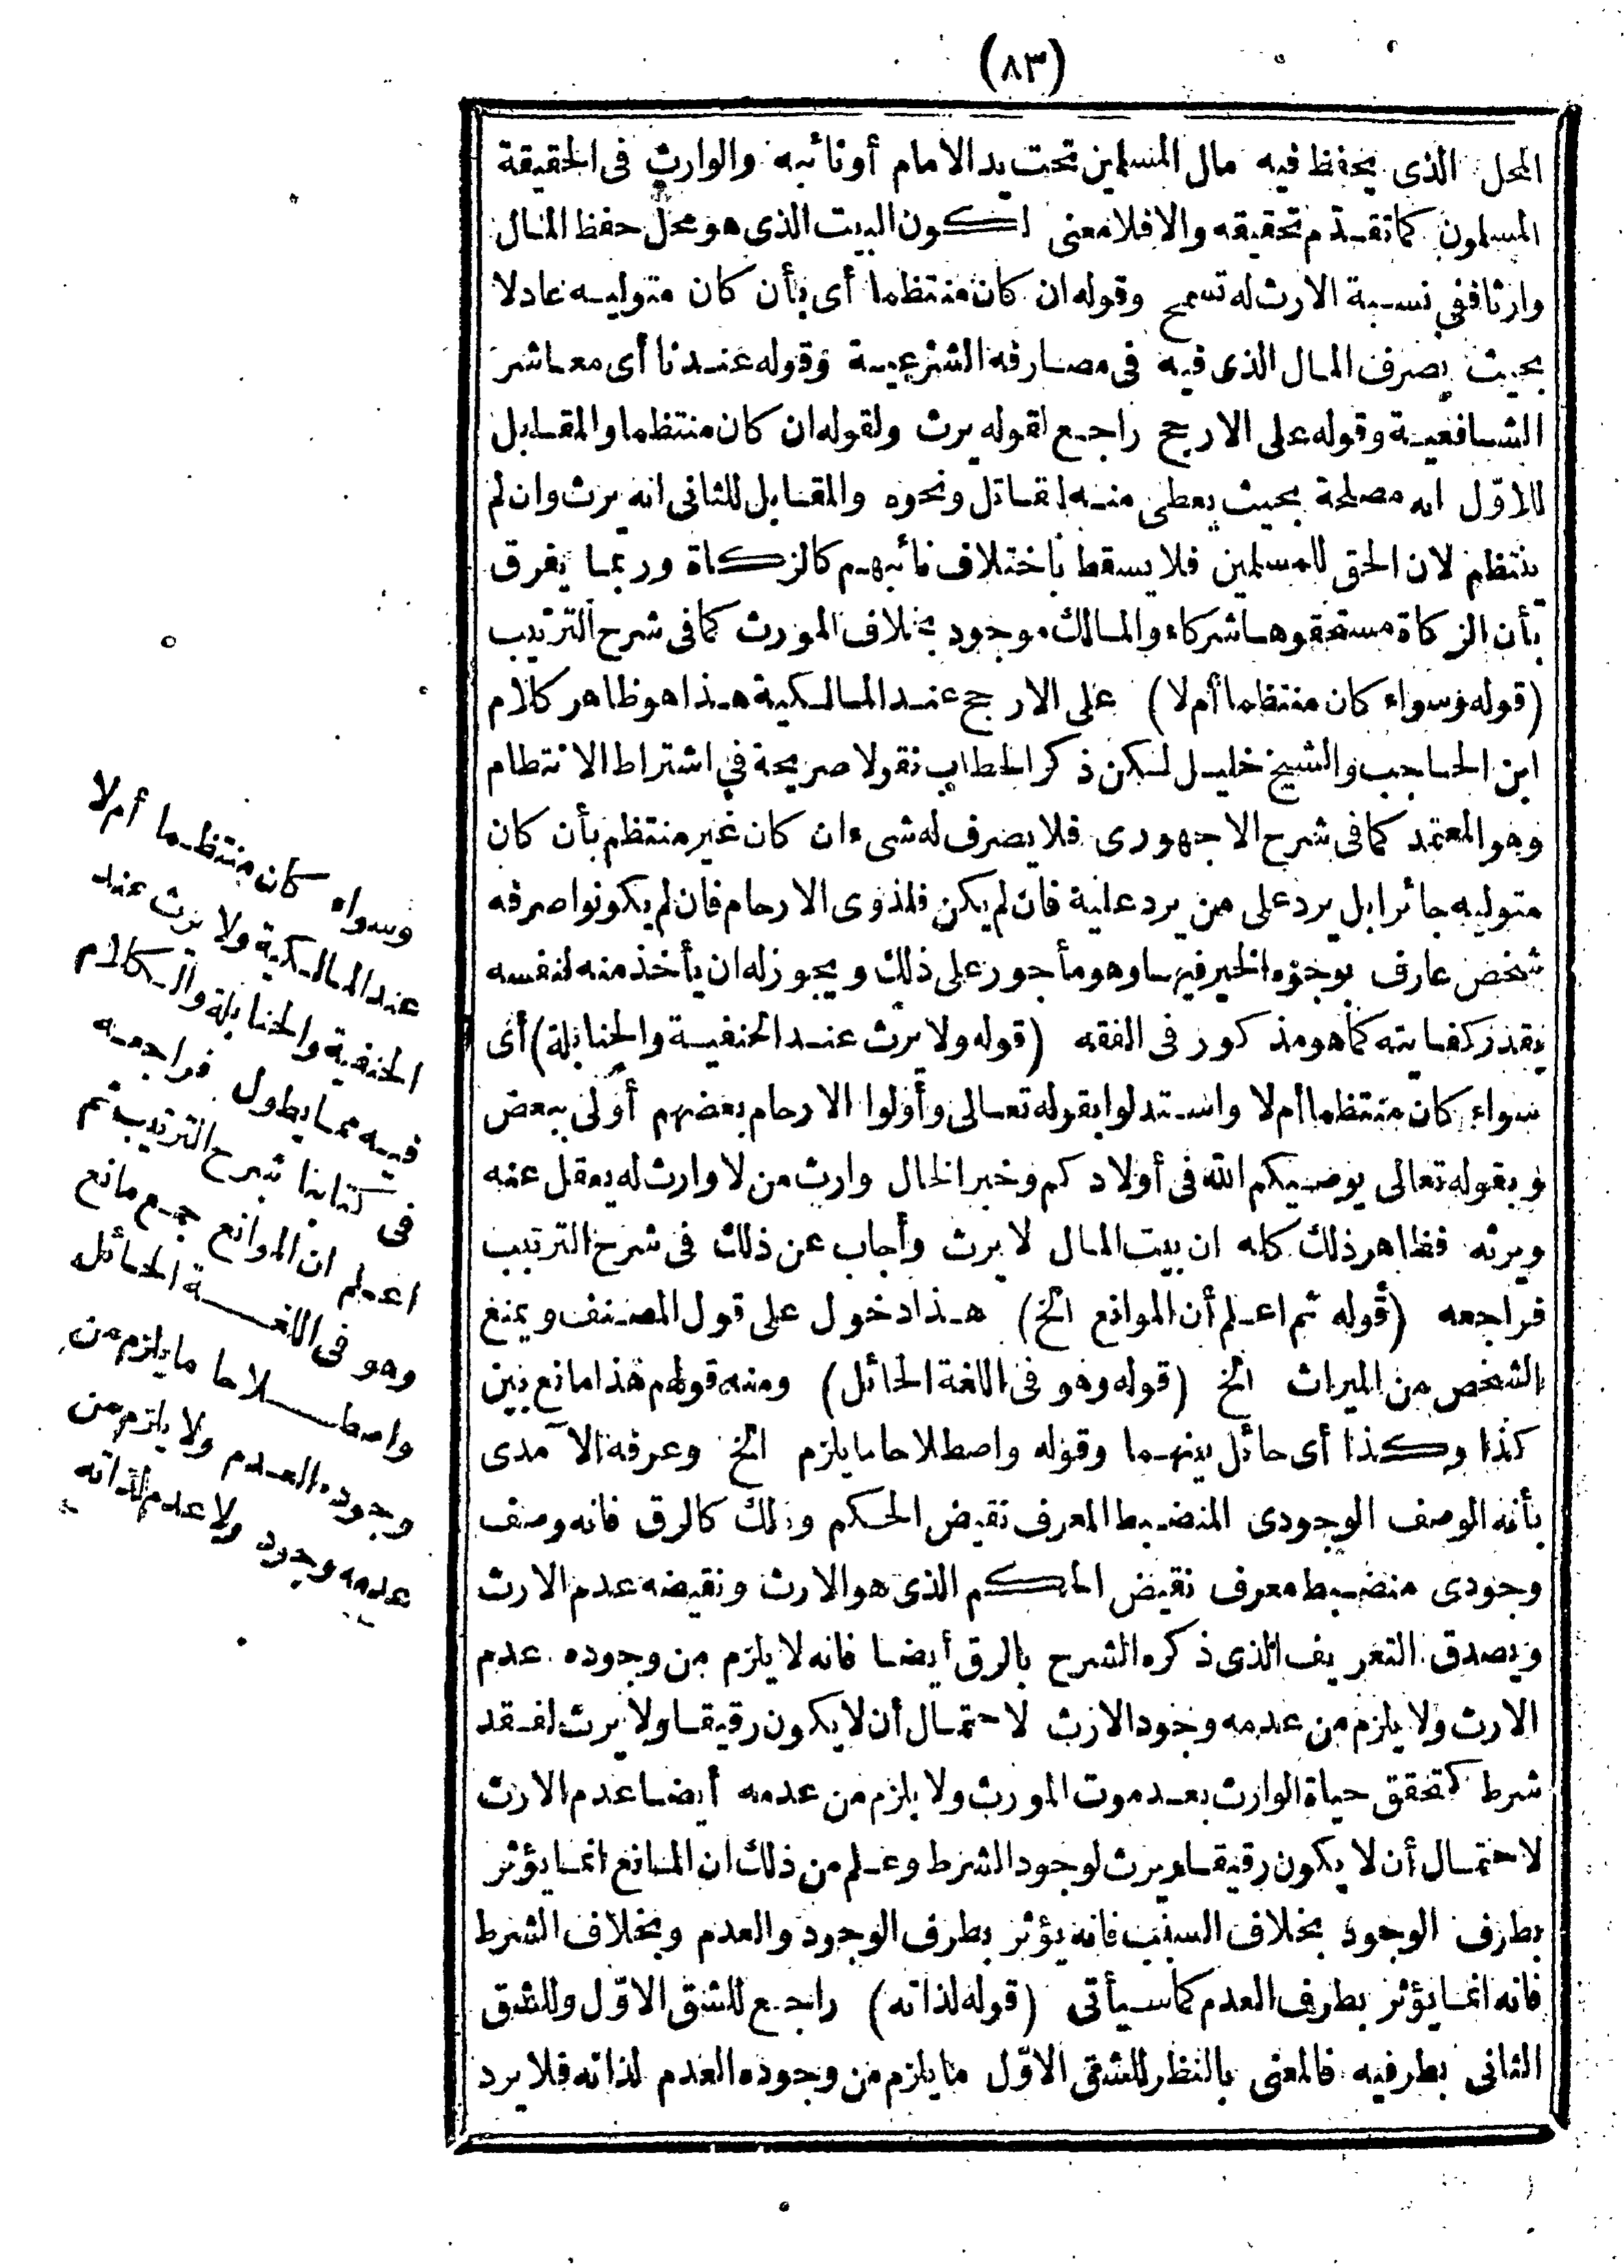 (٨٣)
المحل الذى يحفظ فيه مال المسلمين تحت يد الامام أو نائبه والوارث فى الحقيقة
المسلمون كما تقدّم تحقيقه والا فلا معنى لكون البيت الذى هو محل حفظ المال
وارثا ففى نسبة الارث له تسمح وقوله ان كان منتظما أى بأن كان متوليه عادلا
بحيث يصرف المال الذى فيه فى مصارفه الشرعية وقوله عندنا أى معاشر
الشافعية وقوله على الارجح راجع لقوله يرث ولقوله ان كان منتظما والمقابل
للاوّل انه مصلحة بحيث يعطى منه لقاتل ونحوه والمقابل للثانى انه يرث وان لم
ينتظم لان الحق للمسلمين فلا يسقط باختلاف نائبهم كالزكاة وربما يفرق
بأن الزكاة مستحقوها شركاء والمالك موجود بخلاف المورث كما فى شرح الترتيب
(قوله وسواء كان منتظما أم لا) على الارجح عند المالكية هذا هو ظاهر كلام
ابن الحاجب والشيخ خليل لكن ذكر الحطاب نقولا صريحة فى اشتراط الانتظام
وهو المعتمد كما فى شرح الاجهورى فلا يصرف له شىء ان كان غير منتظم بأن كان
متوليه جائرا بل يرد على من يرد عليه فان لم يكن فلذوى الارحام فان لم يكونوا صرفه
شخص عارف بوجوه الخير فيها وهو مأجور على ذلك ويجوز له ان يأخذ منه لنفسه
بقدر كفايته كما هو مذكور فى الفقه (قوله ولا يرث عند الحنفية والحنابلة) أى
سواء كان منتظما أم لا واستدلوا بقوله تعالى وأولوا الارحام بعضهم أولى ببعض
وبقوله تعالى يوصيكم الله فى أولادكم وخبر الخال وارث من لا وارث له يعقل عنه
ويرثه فظاهر ذلك كله ان بيت المال لا يرث وأجاب عن ذلك فى شرح الترتيب
فراجعه (قوله ثم اعلم أن الموانع الخ) هذا دخول على قول المصنف ويمنع
الشخص من الميراث الخ (قوله وهو فى اللغة الحائل) ومنه قولهم هذا مانع بين
كذا وكذا أى حائل بينهما وقوله واصطلاحا ما يلزم الخ وعرفه الآمدى
بأنه الوصف الوجودى المنضبط المعرف نقيض الحكم وذلك كالرق فانه وصف
وجودى منضبط معرف نقيض الحكم الذى هو الارث ونقيضه عدم الارث
ويصدق التعريف الذى ذكره الشرح بالرق أيضا فانه لا يلزم من وجوده عدم
الارث ولا يلزم من عدمه وجود الارث لاحتمال أن لا يكون رقيقا ولا يرث لفقد
شرط كتحقق حياة الوارث بعد موت المورث ولا يلزم من عدمه أيضا عدم الارث
لاحتمال أن لا يكون رقيقا ويرث لوجود الشرط وعلم من ذلك ان المانع انما يؤثر
بطرف الوجود بخلاف السبب فانه يؤثر بطرف الوجود والعدم وبخلاف الشرط
فانه انما يؤثر بطرف العدم كما سيأتى (قوله لذاته) راجع للشق الاوّل وللشق
الثانى بطرفيه فالمعنى بالنظر للشق الاوّل ما يلزم من وجوده العدم لذاته فلا يرد
وسواء كان منتظما أم لا
عند المالكية ولا يرث عند
الحنفية والحنابلة والكلام
فيه مما يطول فراجعه
فى كتابنا شرح الترتيب ثم
اعلم ان الموانع جمع مانع
وهو فى اللغة الحائل
واصطلاحا ما يلزم من
وجوده العدم ولا يلزم من
عدمه وجود ولا عدم لذاته